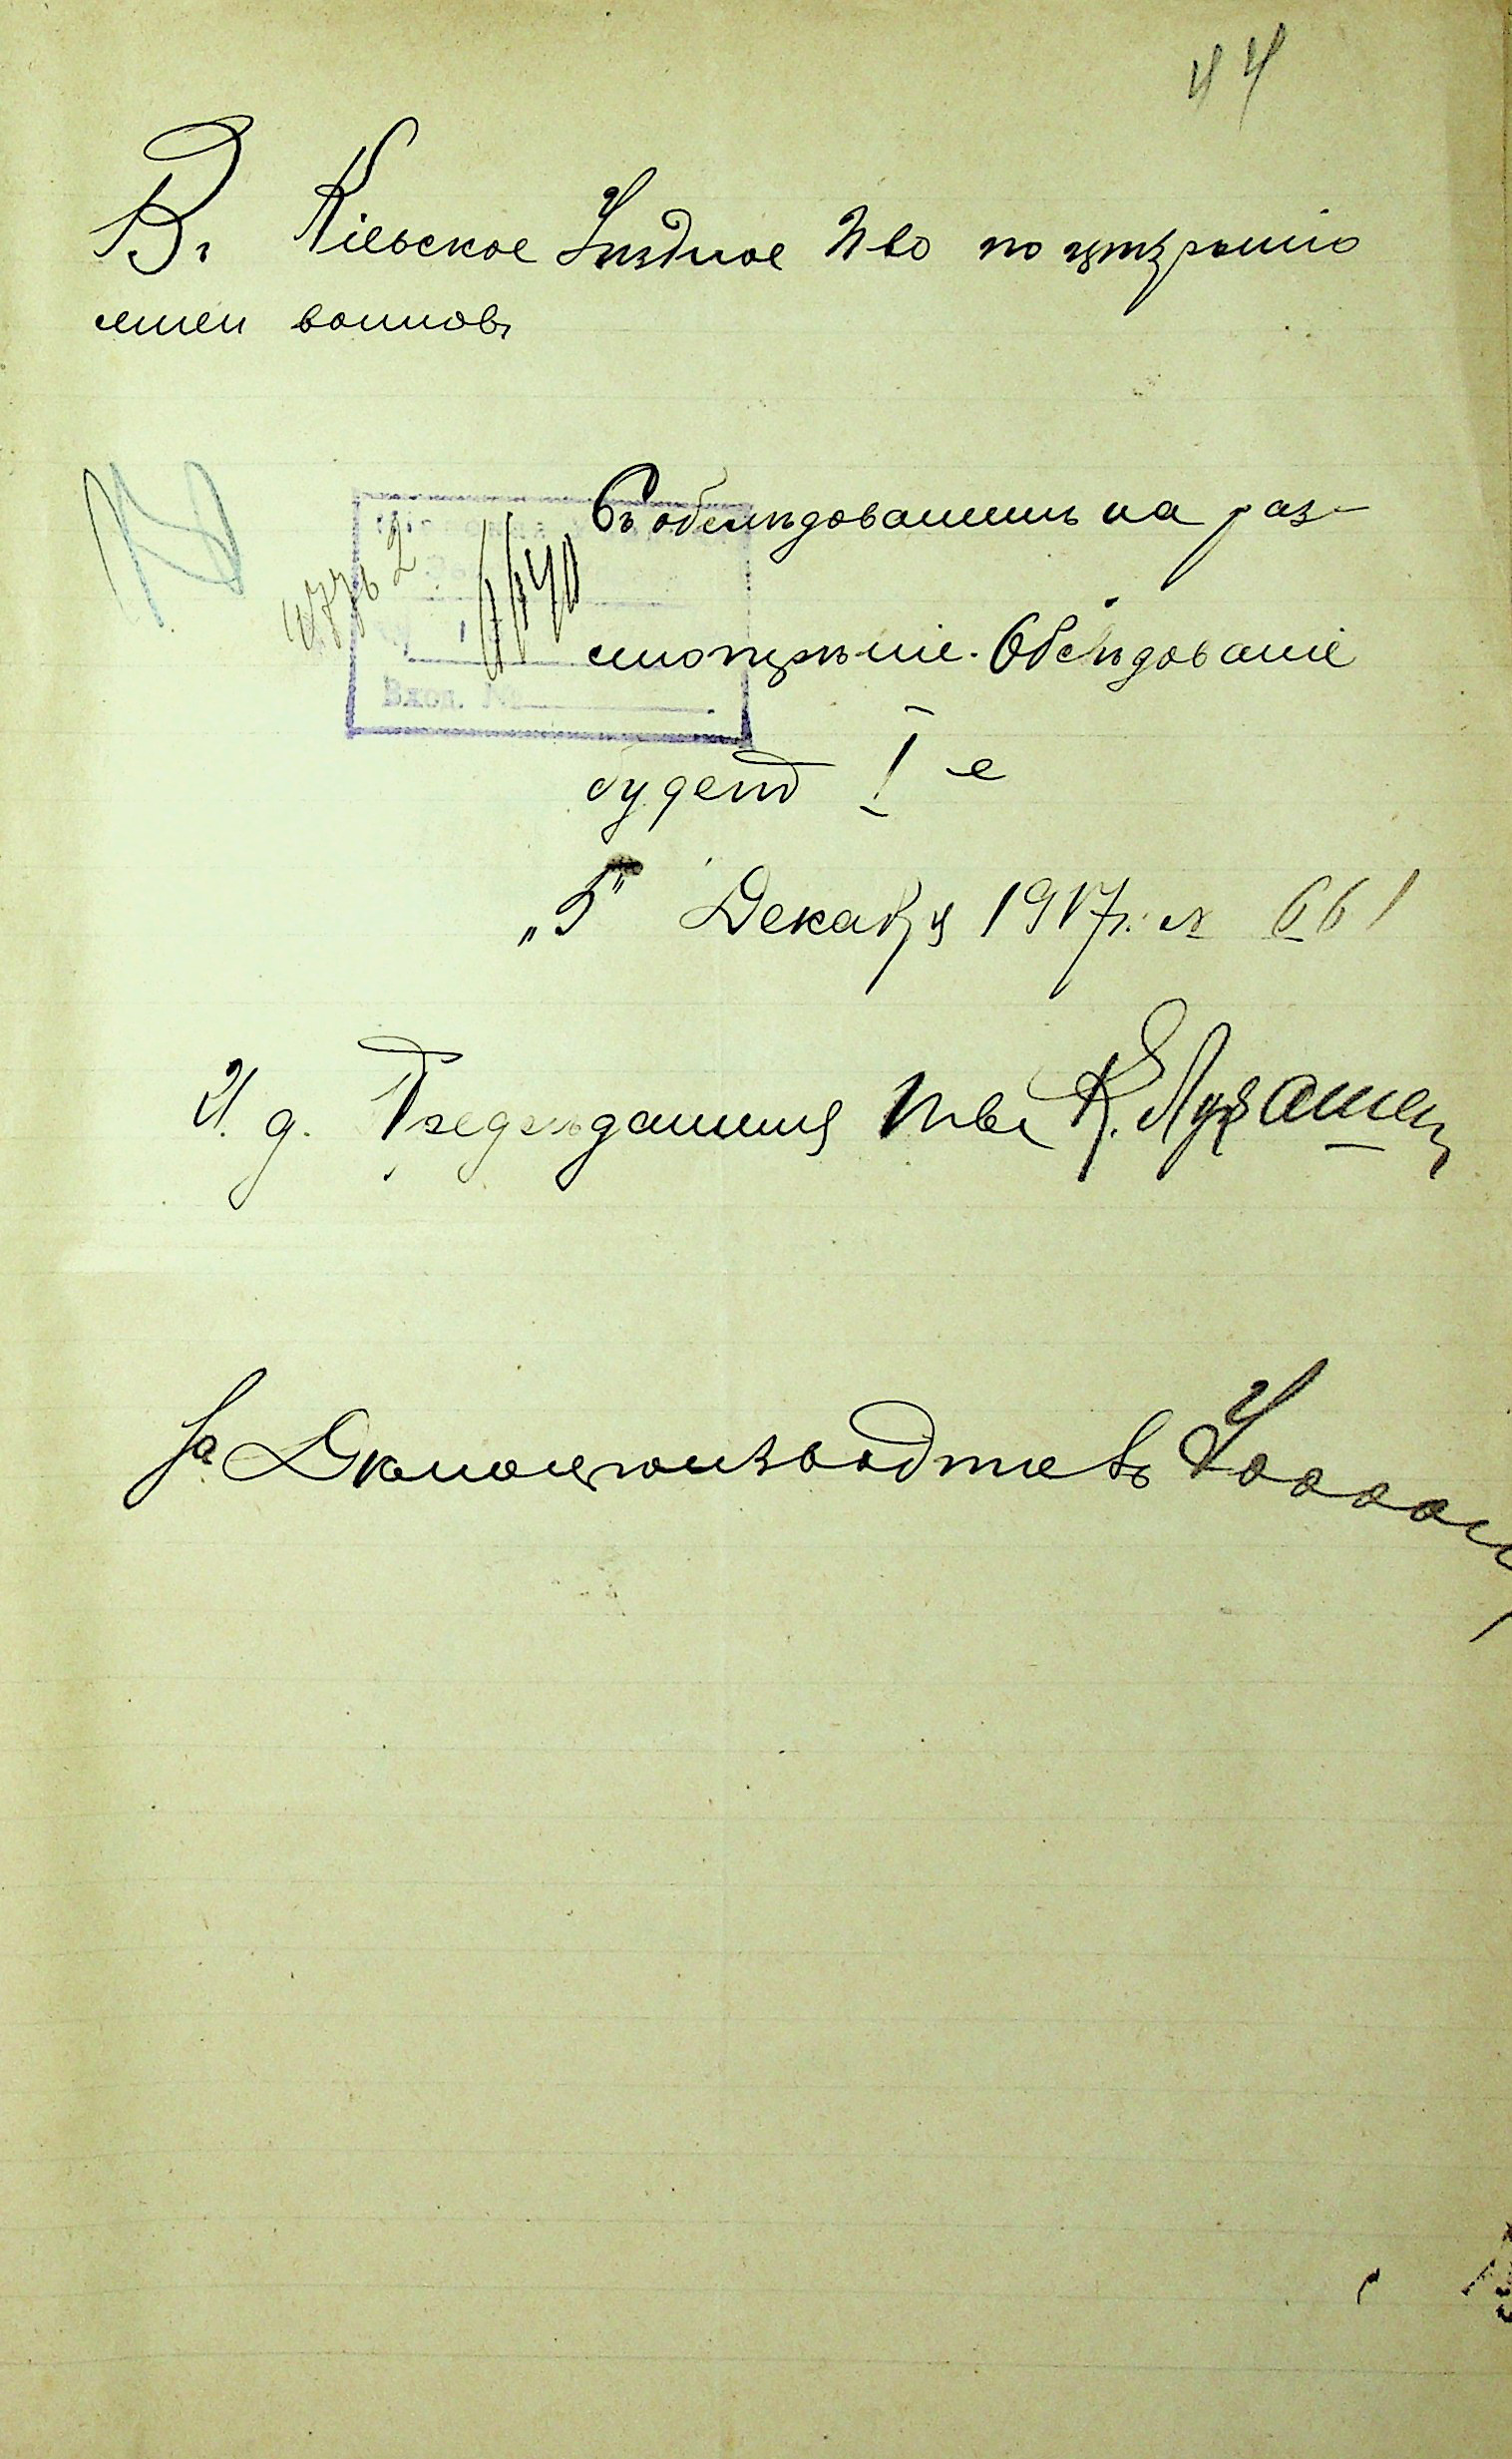 44
Въ Кіевское Уѣздное П-во по призрѣнію
семей воиновъ
Съ обслѣдованіемъ на раз-
смотрѣніе. Обслѣдованіе
будетъ I-е
Вход. №
„5" Декабря 1917 г. № 661
И. д. Предсѣдателя П-ва К. Лукашен
За Дѣлопроизводителя